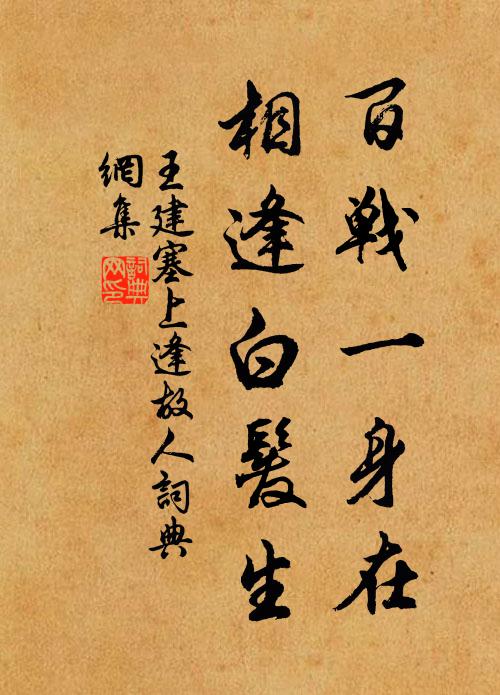 百戦一身在
相逢白髮生
王建塞上逢故人詞典
網集
詞典
网印